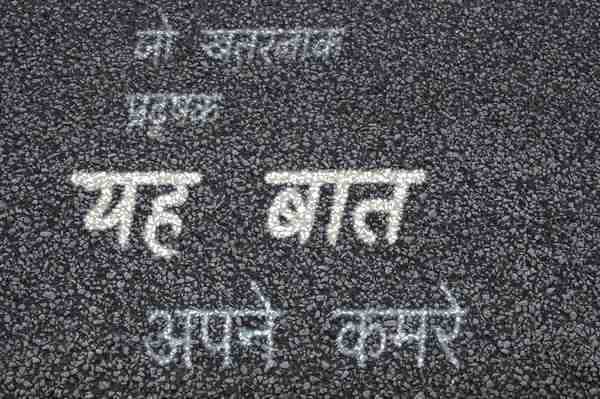 जो खतरनाक
प्रदूषक
यह बात
अपने कमरे